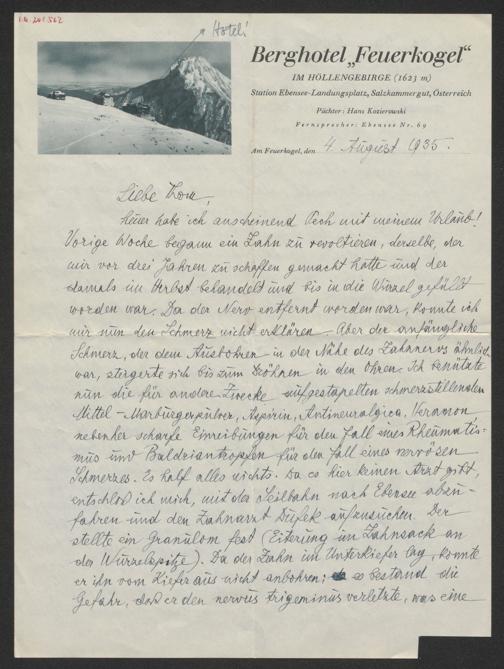 I.N. 201.562
Hotel!
Berghotel „Feuerkogel“
IM HÖLLENGEBIRGE (1623 m)
Station Ebensee-Landungsplatz, Salzkammergut, Österreich
Pächter: Hans Kozierowski
Fernsprecher: Ebensee Nr. 69
Am Feuerkogel, den 4. August 1935.
Liebe
heuer habe ich anscheinend Pech mit meinem Urlaub!
Vorige Woche begann ein Zahn zu revoltieren, derselbe, der
mir vor drei Jahren zu schaffen gemacht hatte und der
damals im Herbst behandelt und bis in die Wurzel gefüllt
worden war. Da der Nerv entfernt worden war, konnte ich
mir nun den Schmerz nicht erklären. Aber der anfängliche
Schmerz, der dem Ausbohren in der Nähe des Zahnnervs ähnlich
war, steigerte sich bis zum Dröhnen in den Ohren. Ich benützte
nun die für andere Zwecke aufgestapelten schmerzstillenden
Mittel – Marburgerpulver, Aspirin, Antineuralgica, Veramon
nebenher scharfe Einreibungen für den Fall eines Rheumatis-
mus und Baldriantropfen für den Fall eines nervösen
Schmerzes. Es half alles nichts. Da es hier keinen Arzt gibt,
entschloß ich mich, mit der Seilbahn nach Ebensee abzu-
fahren und den Zahnarzt Dušek aufzusuchen. Der
stellte ein Granulom fest (Eiterung im Zahnsack an
der Wurzelspitze). Da der Zahn im Unterkiefer lag, konnte
er ihn vom Kiefer aus nicht anbohren; es bestand die
Gefahr, daß er den nervus trigeminus verletzte, was eine